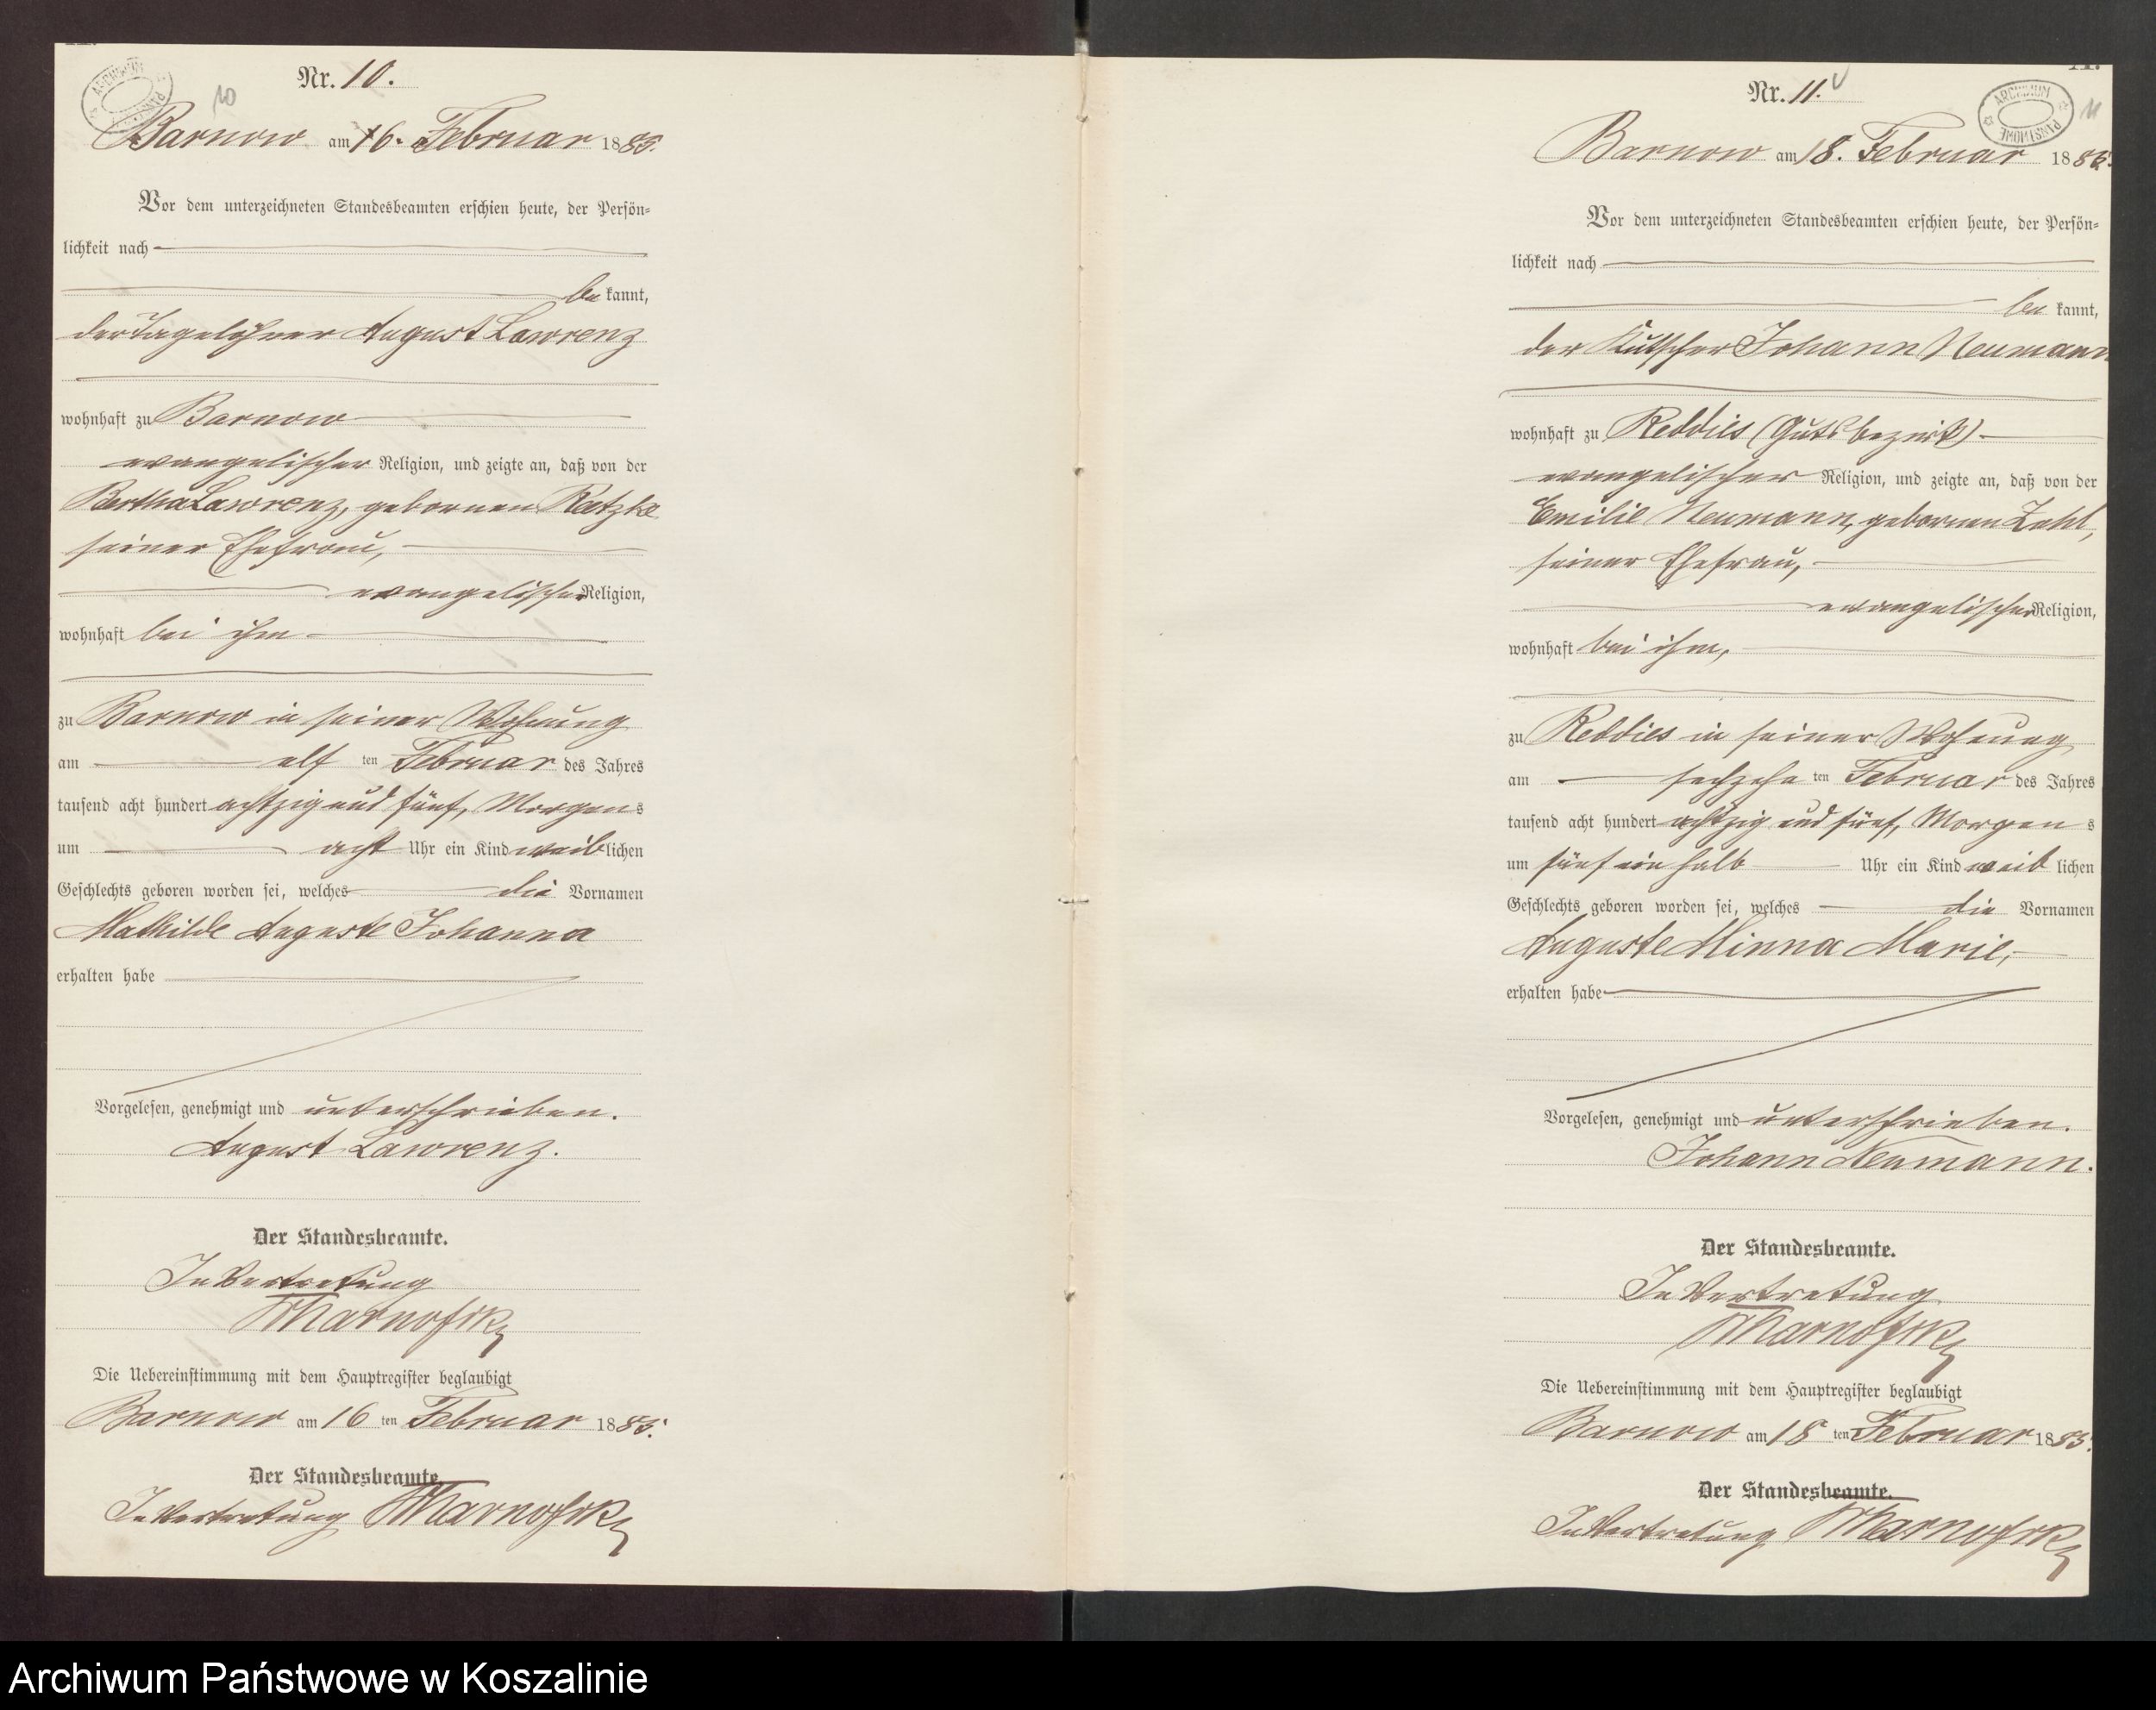 Nr. 10.
10
Barnow am 16. Februar 1885.
Vor dem unterzeichneten Standesbeamten erschien heute, der Persön=
lichkeit nach
be kannt,
der Tagelöhner August Lawrenz
wohnhaft zu Barnow
evangelischer Religion, und zeigte an, daß von der
Bertha Lawrenz, gebornen Ratzke
seiner Ehefrau,
evangelischer Religion,
wohnhaft bei ihm
zu Barnow in seiner Wohnung
am elf ten Februar des Jahres
tausend acht hundert achtzig und fünf, Morgen s
um acht Uhr ein Kind weib lichen
Geschlechts geboren worden sei, welches die Vornamen
Mathilde Auguste Johanna
erhalten habe
Vorgelesen, genehmigt und unterschrieben.
August Lawrenz.
Der Standesbeamte.
In Vertretung
Die Uebereinstimmung mit dem Hauptregister beglaubigt
Barnow am 16 ten Februar 1885.
Der Standesbeamte.
In Vertretung
Nr. 11.
ARCHIWUM PAŃSTWOWE
11
Barnow am 18. Februar 1885.
Vor dem unterzeichneten Standesbeamten erschien heute, der Persön=
lichkeit nach
be kannt,
der Kutscher Johann Neumann
wohnhaft zu Reddies (Gutsbezirk)
evangelischer Religion, und zeigte an, daß von der
Emilie Neumann, gebornen Zahl,
seiner Ehefrau,
evangelischer Religion,
wohnhaft bei ihm,
zu Reddies in seiner Wohnung
am sechzehn ten Februar des Jahres
tausend acht hundert achtzig und fünf, Morgen s
um fünf ein halb Uhr ein Kind weib lichen
Geschlechts geboren worden sei, welches die Vornamen
Auguste Minna Marie,
erhalten habe
Vorgelesen, genehmigt und unterschrieben.
Johann Neumann.
Der Standesbeamte.
In Vertretung
Die Uebereinstimmung mit dem Hauptregister beglaubigt
Barnow am 18 ten Februar 1885.
Der Standesbeamte.
In Vertretung
Archiwum Państwowe w Koszalinie